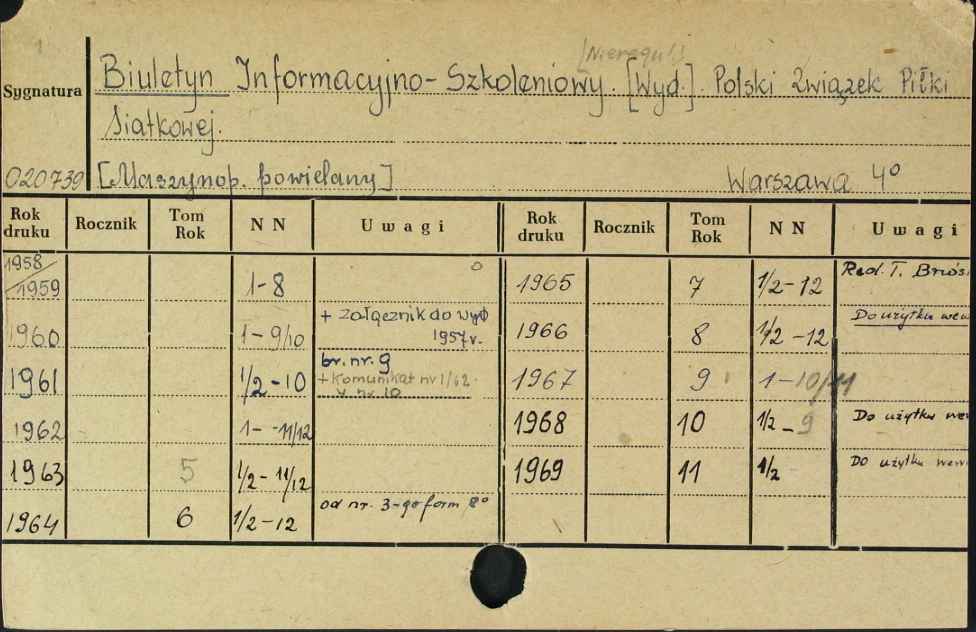 [Nieregul.]
Biuletyn Informacyjno-Szkoleniowy. [Wyd.]. Polski Związek Piłki
Siatkowej.
Sygnatura
020739 [Maszynop. powielany] Warszawa 4°
Rok druku Rocznik Tom Rok NN Uwagi Rok druku Rocznik Tom Rok NN Uwagi
1958/1959 1-8
1960 1-9/10 + załącznik do
1957 r.
1961 1/2-10 br. nr. 9
+ Komunikat nr 1/62
w nr 10
1962 1- -11/12
1963 5 1/2-11/12
1964 6 1/2-12 od nr. 3-go form 8°
1965 7 1/2-12 Red. T.
1966 8 1/2-12 Do użytku wew
1967 9 1-10/11
1968 10 1/2-9 Do użytku wew
1969 11 1/2 Do użytku wew